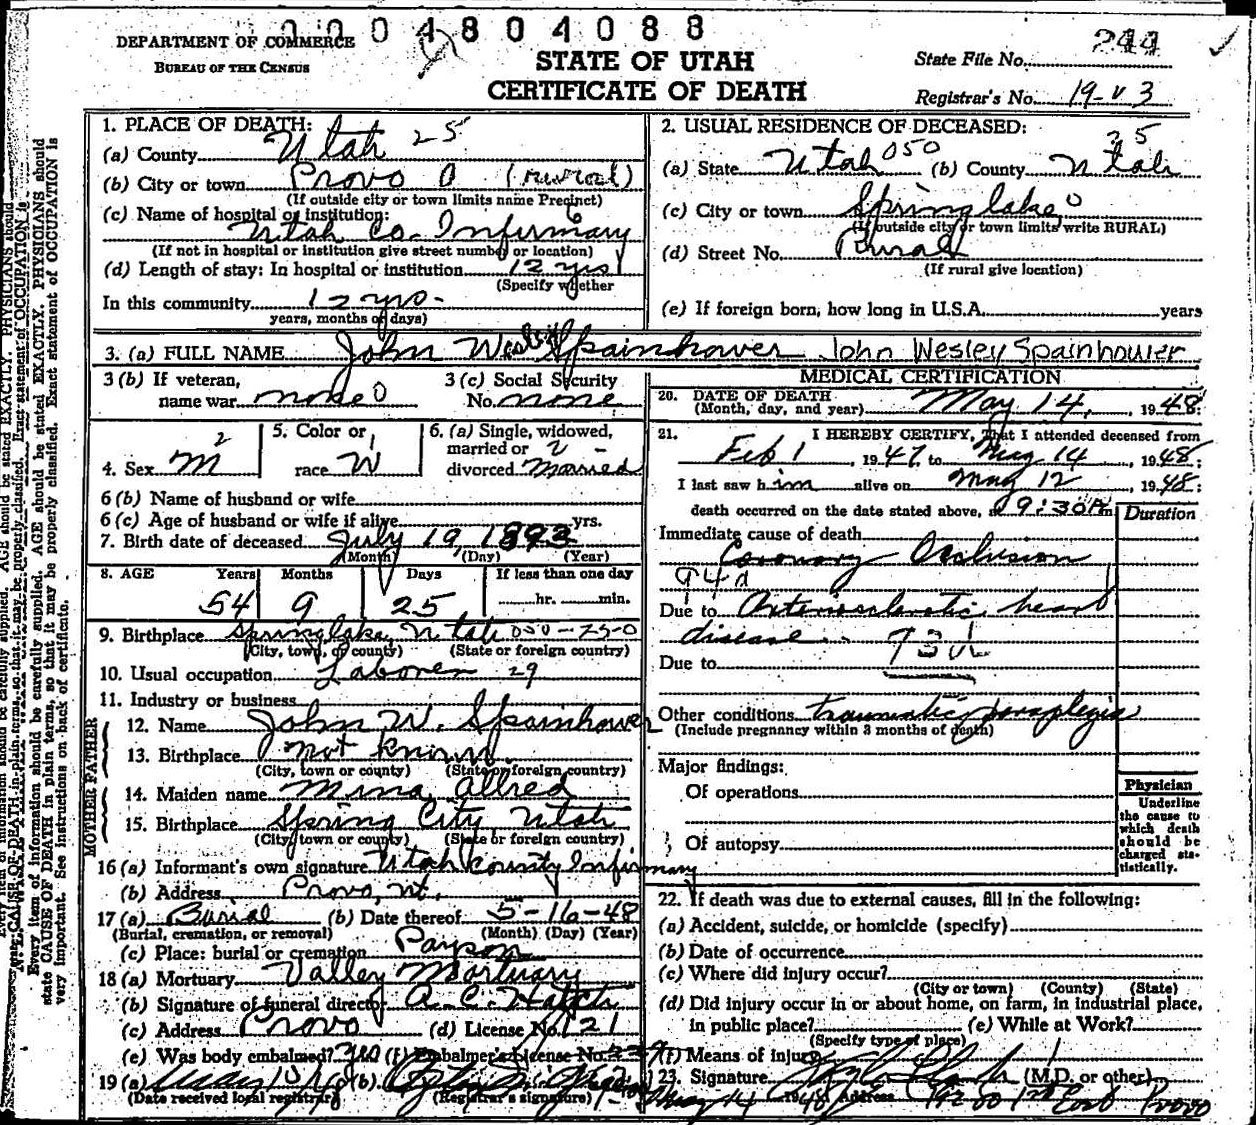 0004804088
DEPARTMENT OF COMMERCE
BUREAU OF THE CENSUS
STATE OF UTAH
CERTIFICATE OF DEATH
State File No. 244
Registrar's No. 19-V3
1. PLACE OF DEATH: 25
(a) County Utah
(b) City or town Provo 0 (rural)
(If outside city or town limits name Precinct)
(c) Name of hospital or institution: 6
Utah Co. Infirmary
(If not in hospital or institution give street number or location)
(d) Length of stay: In hospital or institution 12 yrs
(Specify whether
In this community 12 yrs.
years, months or days)
2. USUAL RESIDENCE OF DECEASED:
(a) State Utah 050 (b) County Utah
(c) City or town Springlake 0
(If outside city or town limits write RURAL)
(d) Street No. Rural
(If rural give location)
(e) If foreign born, how long in U.S.A. years
3. (a) FULL NAME John Wesley Spainhower John Wesley Spainhower
3 (b) If veteran, name war none 0
3 (c) Social Security No. none
4. Sex M 2
5. Color or race W 1
6. (a) Single, widowed, married or divorced Married 2
6 (b) Name of husband or wife
6 (c) Age of husband or wife if alive yrs.
7. Birth date of deceased July 19, 1893
(Month) (Day) (Year)
8. AGE Years Months Days If less than one day
54 9 25 hr. min.
9. Birthplace Springlake, Utah 050-25-0
(City, town, or county) (State or foreign country)
10. Usual occupation Laborer 29
11. Industry or business
FATHER
12. Name John W. Spainhower
13. Birthplace Not known
(City, town or county) (State or foreign country)
MOTHER
14. Maiden name Mina Allred
15. Birthplace Spring City Utah
(City, town or county) (State or foreign country)
16 (a) Informant's own signature Utah County Infirmary
(b) Address Provo, Ut.
17 (a) Burial (b) Date thereof 5-16-48
(Burial, cremation, or removal) (Month) (Day) (Year)
(c) Place: burial or cremation Payson
18 (a) Mortuary Valley Mortuary
(b) Signature of funeral director A. C. Hatch
(c) Address Provo (d) License No. 121
(e) Was body embalmed? Yes (f) Embalmer's License No.
19 (a) (b)
(Date received local registrar) (Registrar's signature)
MEDICAL CERTIFICATION
20. DATE OF DEATH
(Month, day, and year) May 14, 1948.
21. I HEREBY CERTIFY, That I attended deceased from
Feb 1, 1947 to May 14, 1948;
I last saw him alive on May 12, 1948;
death occurred on the date stated above, at 9:30 P. Duration
Immediate cause of death
Coronary Occlusion
94a
Due to Arteriosclerotic heart
disease
Due to
Other conditions traumatic paraplegia
(Include pregnancy within 3 months of death)
Major findings:
Of operations
Of autopsy
Physician
Underline
the cause to
which death
should be
charged sta-
tistically.
22. If death was due to external causes, fill in the following:
(a) Accident, suicide, or homicide (specify)
(b) Date of occurrence
(c) Where did injury occur?
(City or town) (County) (State)
(d) Did injury occur in or about home, on farm, in industrial place,
in public place? (e) While at Work?
(Specify type of place)
(f) Means of injury
23. Signature (M.D. or other)
May 14 1948 Address Provo
Every item of information should be carefully supplied. AGE should be stated EXACTLY. PHYSICIANS should
state CAUSE OF DEATH in plain terms, so that it may be properly classified. Exact statement of OCCUPATION is
very important. See instructions on back of certificate.